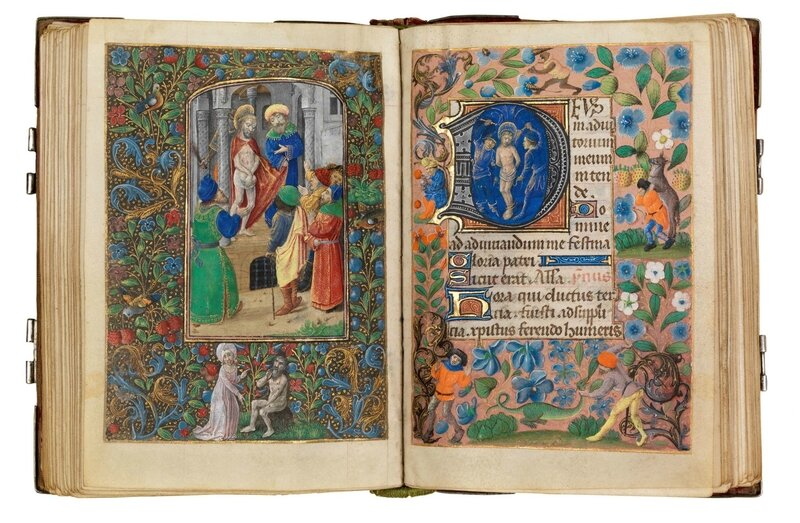 DEVS
in adiu
torium
meum
inten
de. Do
mine
ad adiuuandum me festina
Gloria patri
Sicut erat. Alla. ỹnus
Hora qui ductus ter
cia. fuisti ad suppli
cia. xpistus ferendo humeris